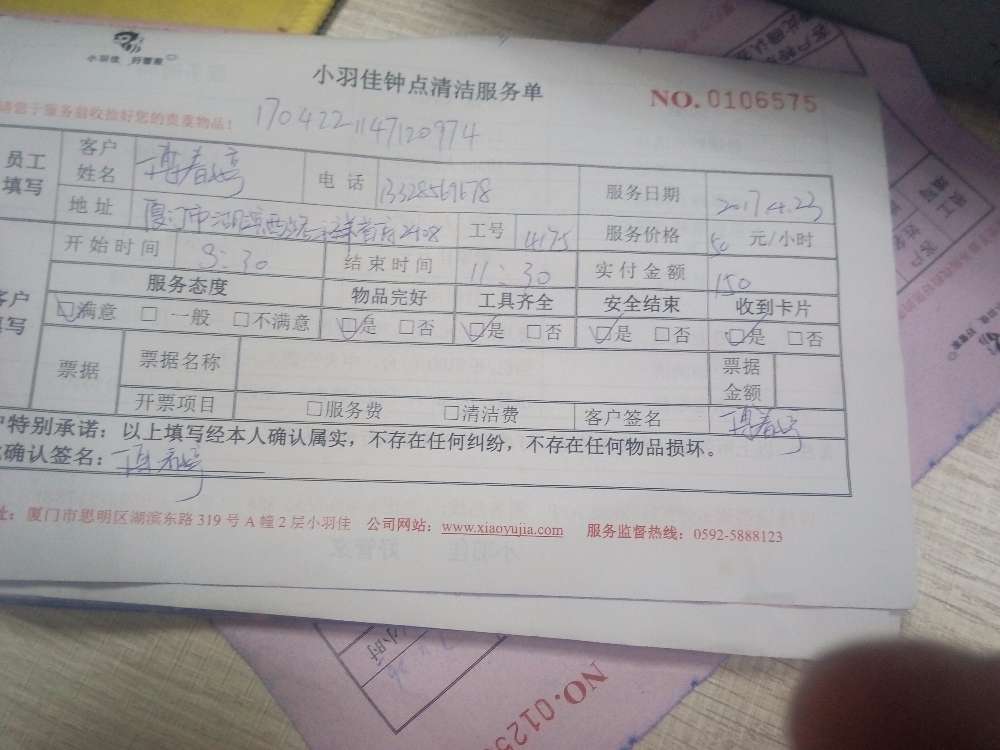 小羽佳 好管家
小羽佳钟点清洁服务单
NO. 0106575
请您于服务前收捡好您的贵重物品!
1704221147120974
员工填写 客户姓名 春婷 电话 服务日期 2017.4.23
地址 厦门市湖滨西路 2408 工号 4175 服务价格 50 元/小时
开始时间 9:30 结束时间 11:30 实付金额 150
客户填写 服务态度 物品完好 工具齐全 安全结束 收到卡片
☑满意 □ 一般 □不满意 ☑是 □否 ☑是 □否 ☑是 □否 ☑是 □否
票据 票据名称 票据金额
开票项目 □服务费 □清洁费 客户签名 春婷
户特别承诺:以上填写经本人确认属实,不存在任何纠纷,不存在任何物品损坏。
确认签名: 春婷
址:厦门市思明区湖滨东路 319 号 A 幢 2 层小羽佳 公司网站:www.xiaoyujia.com 服务监督热线:0592-5888123
小时
NO.0125